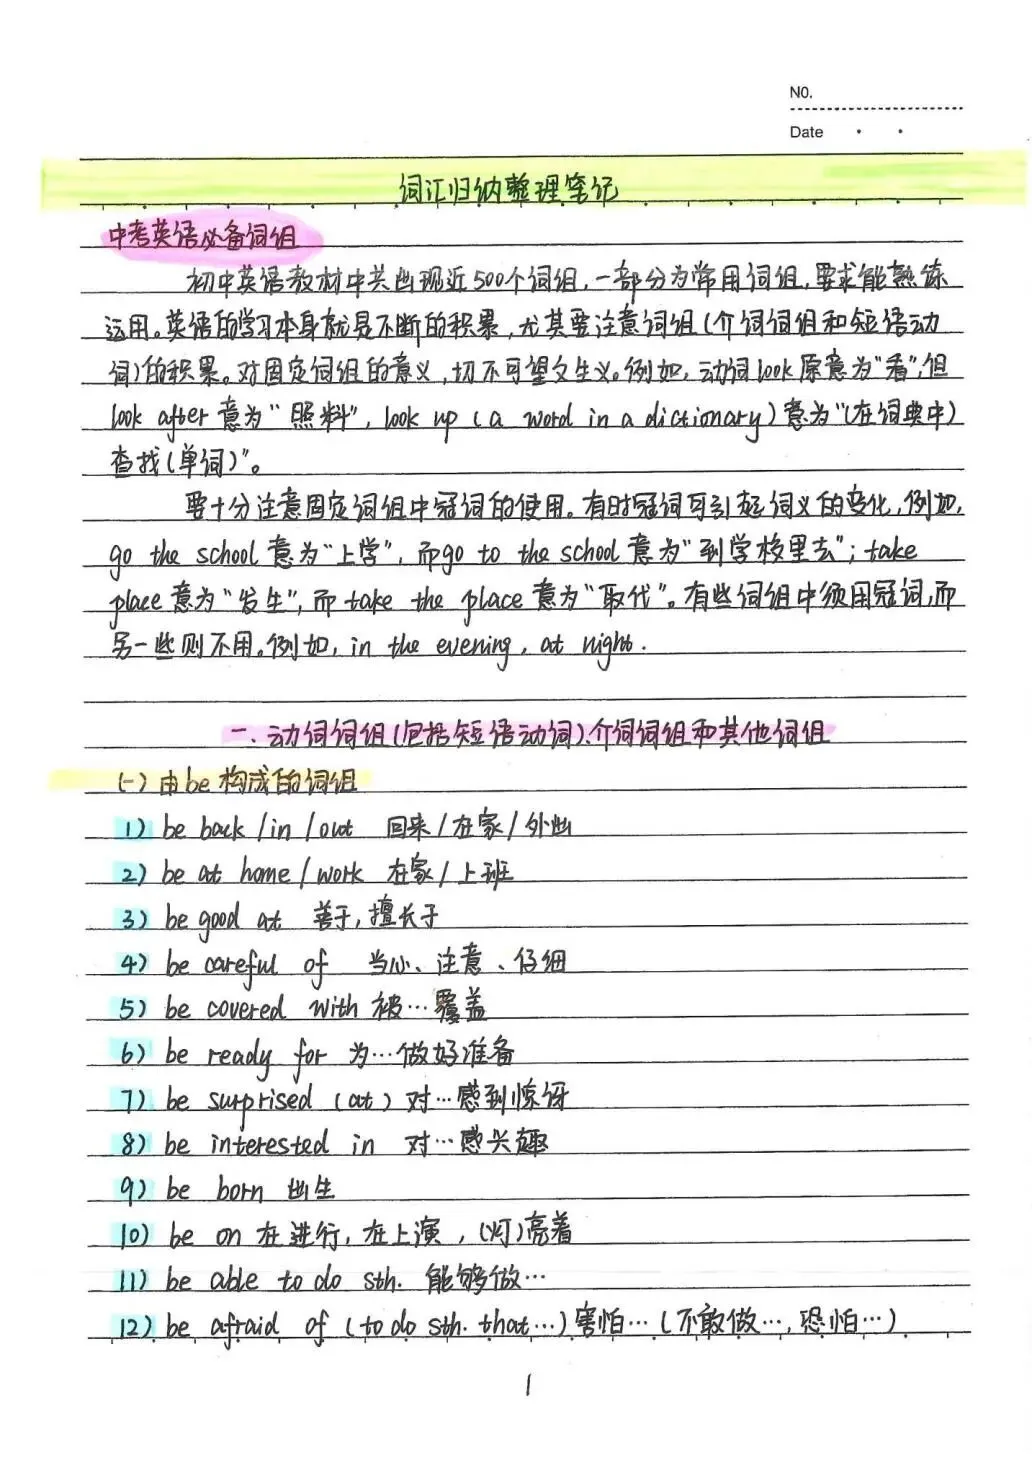 NO.
Date
词汇归纳整理笔记
中考英语必备词组
初中英语教材中共出现近500个词组,一部分为常用词组,要求能熟练
运用。英语的学习本身就是不断的积累,尤其要注意词组(介词词组和短语动
词)的积累。对固定词组的意义,切不可望文生义。例如,动词look原意为"看",但
look after意为"照料", look up (a word in a dictionary)意为"(在词典中)
查找(单词)"。
要十分注意固定词组中冠词的使用。有时冠词可引起词义的变化,例如,
go the school意为"上学",而go to the school意为"到学校里去"; take
place意为"发生",而take the place意为"取代"。有些词组中须用冠词,而
另一些则不用。例如, in the evening, at night.
一、动词词组(包括短语动词)、介词词组和其他词组
(一)由be构成的词组
1) be back/in/out 回来/在家/外出
2) be at home/work 在家/上班
3) be good at 善于,擅长于
4) be careful of 当心、注意、仔细
5) be covered with 被…覆盖
6) be ready for 为…做好准备
7) be surprised (at) 对…感到惊讶
8) be interested in 对…感兴趣
9) be born 出生
10) be on 在进行,在上演,(灯)亮着
11) be able to do sth. 能够做…
12) be afraid of (to do sth. that…)害怕…(不敢做…,恐怕…)
1